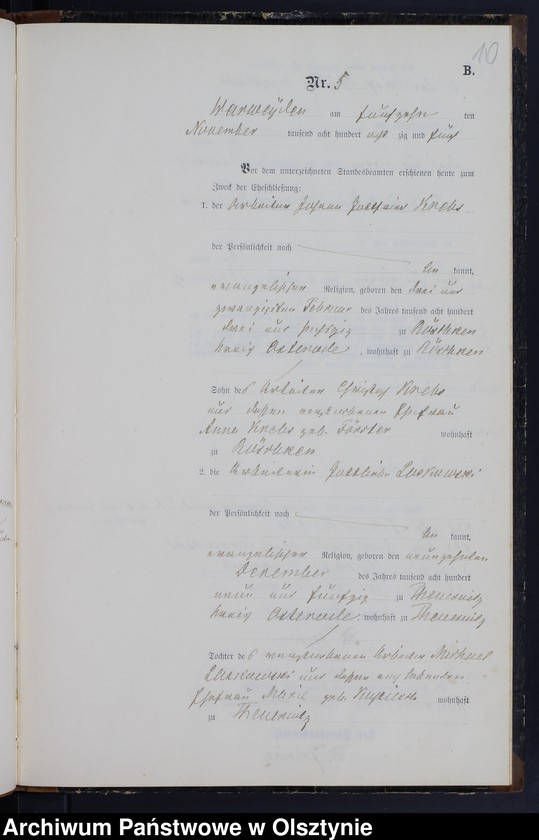 10
B.
Nr. 5
Warweiden am fünfzehn ten
November tausend acht hundert acht zig und fünf
Vor dem unterzeichneten Standesbeamten erschienen heute zum
Zweck der Eheschließung:
1. der Arbeiter Johann Krebs
der Persönlichkeit nach
be kannt,
evangelischer Religion, geboren den drei und
zwanzigsten Februar des Jahres tausend acht hundert
drei und sechszig zu Röschken
Kreis Osterode, wohnhaft zu Röschken
Sohn des Arbeiter Krebs
und dessen verstorbenen Ehefrau
Anna Krebs geb. Förster wohnhaft
zu Röschken
2. die Arbeiterin Gottliebe
der Persönlichkeit nach
be kannt,
evangelischer Religion, geboren den neunzehnten
Dezember des Jahres tausend acht hundert
neun und fünfzig zu Theuernitz
Kreis Osterode, wohnhaft zu Theuernitz
Tochter des verstorbenen Arbeiter Michael
und dessen
Ehefrau Marie geb. wohnhaft
zu Theuernitz
Archiwum Państwowe w Olsztynie